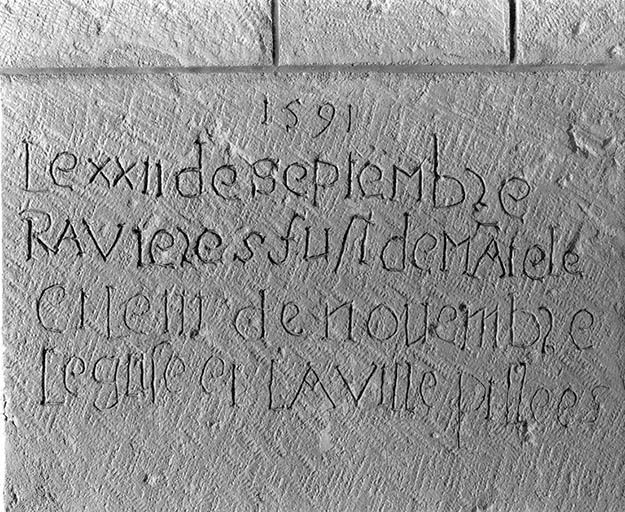 1591
Le XXII de septembre
RAVieres fust de MÃtele
et le III de novembre
Leglise et LA Ville pillees